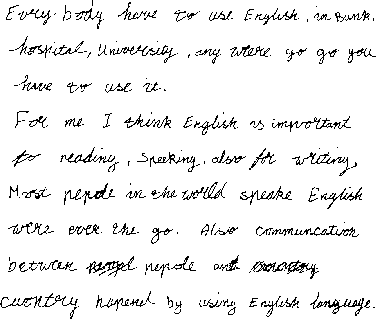 Every body have to use English, in Bank,
hospital, University, any were go go you
have to use it.
For me I think English is important
to reading, speeking, also for writing,
Most pepole in the world speake English
were ever the go. Also communcation
between pepole and
cuontry hapened by using English language.